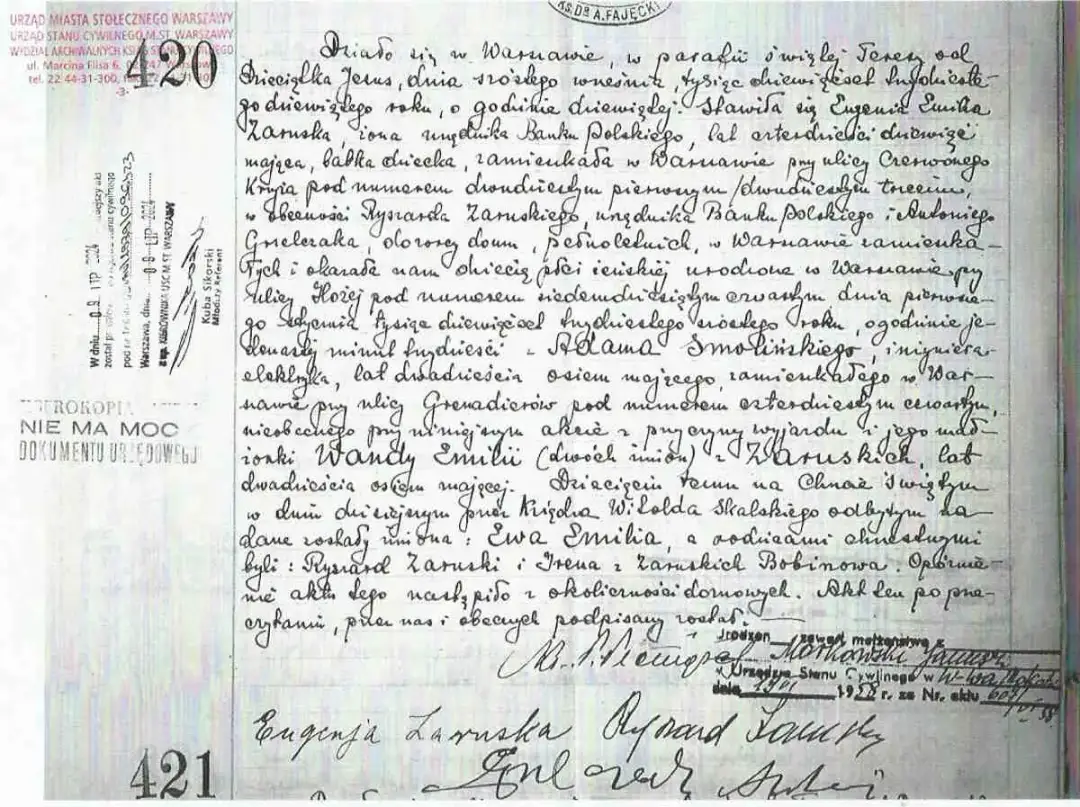 URZĄD MIASTA STOŁECZNEGO WARSZAWY
URZĄD STANU CYWILNEGO M.ST. WARSZAWY
WYDZIAŁ ARCHIWALNYCH KSIĄG STANU CYWILNEGO
ul. Marcina Flisa 6, 02-247 Warszawa
tel. 22 44-31-300,
-3-
420
KS. DR A. FAJĘCKI
Działo się w Warszawie, w parafii świętej Teresy od
Dzieciątka Jezus, dnia szóstego września, tysiąc dziewięćset trzydzieste-
go dziewiątego roku, o godzinie dziewiątej. Stawiła się Eugenia Emilia
Zaruska, żona urzędnika Banku Polskiego, lat czterdzieści dziewięć
mająca, babka dziecka, zamieszkała w Warszawie przy ulicy Czerwonego
Krzyża pod numerem dwudziestym pierwszym/dwudziestym trzecim,
w obecności Ryszarda Zaruskiego, urzędnika Banku Polskiego i Antoniego
Grzelczaka, dozorcy domu, pełnoletnich, w Warszawie zamieszka-
łych i okazała nam dziecię płci żeńskiej urodzone w Warszawie przy
ulicy Hożej pod numerem siedemdziesiątym czwartym dnia pierwsze-
go stycznia tysiąc dziewięćset trzydziestego szóstego roku, o godzinie je-
denastej minut trzydzieści z Adama Smolińskiego, inżyniera-
elektryka, lat dwadzieścia osiem mającego, zamieszkałego w War-
szawie przy ulicy Grenadierów pod numerem czterdziestym czwartym,
nieobecnego przy niniejszym akcie z przyczyny wyjazdu i jego mał-
żonki Wandy Emilii (dwóch imion) z Zaruskich, lat
dwadzieścia osiem mającej. Dziecięciu temu na Chrzcie Świętym
w dniu dzisiejszym przez Księdza Witolda Skalskiego odbytym na
dane zostały imiona: Ewa Emilia, a rodzicami chrzestnymi
byli: Ryszard Zaruski i Irena z Zaruskich Bobinowa. Opóźnie-
nie aktu tego nastąpiło z okoliczności domowych. Akt ten po prze-
czytaniu, przez nas i obecnych podpisany został.
zawarł małżeństwo z
Markowski Janusz
w Urzędzie Stanu Cywilnego w W-wa
dnia 1958 r. za Nr. aktu
Eugenja Zaruska Ryszard Zaruski
421
W dniu 09 LIP 2024
Warszawa, dnia 09 LIP 2024
z up. KIEROWNIKA USC M.ST. WARSZAWY
Kuba Sikorski
Młodszy Referent
KSEROKOPIA
NIE MA MOC
DOKUMENTU URZĘDOWEGO